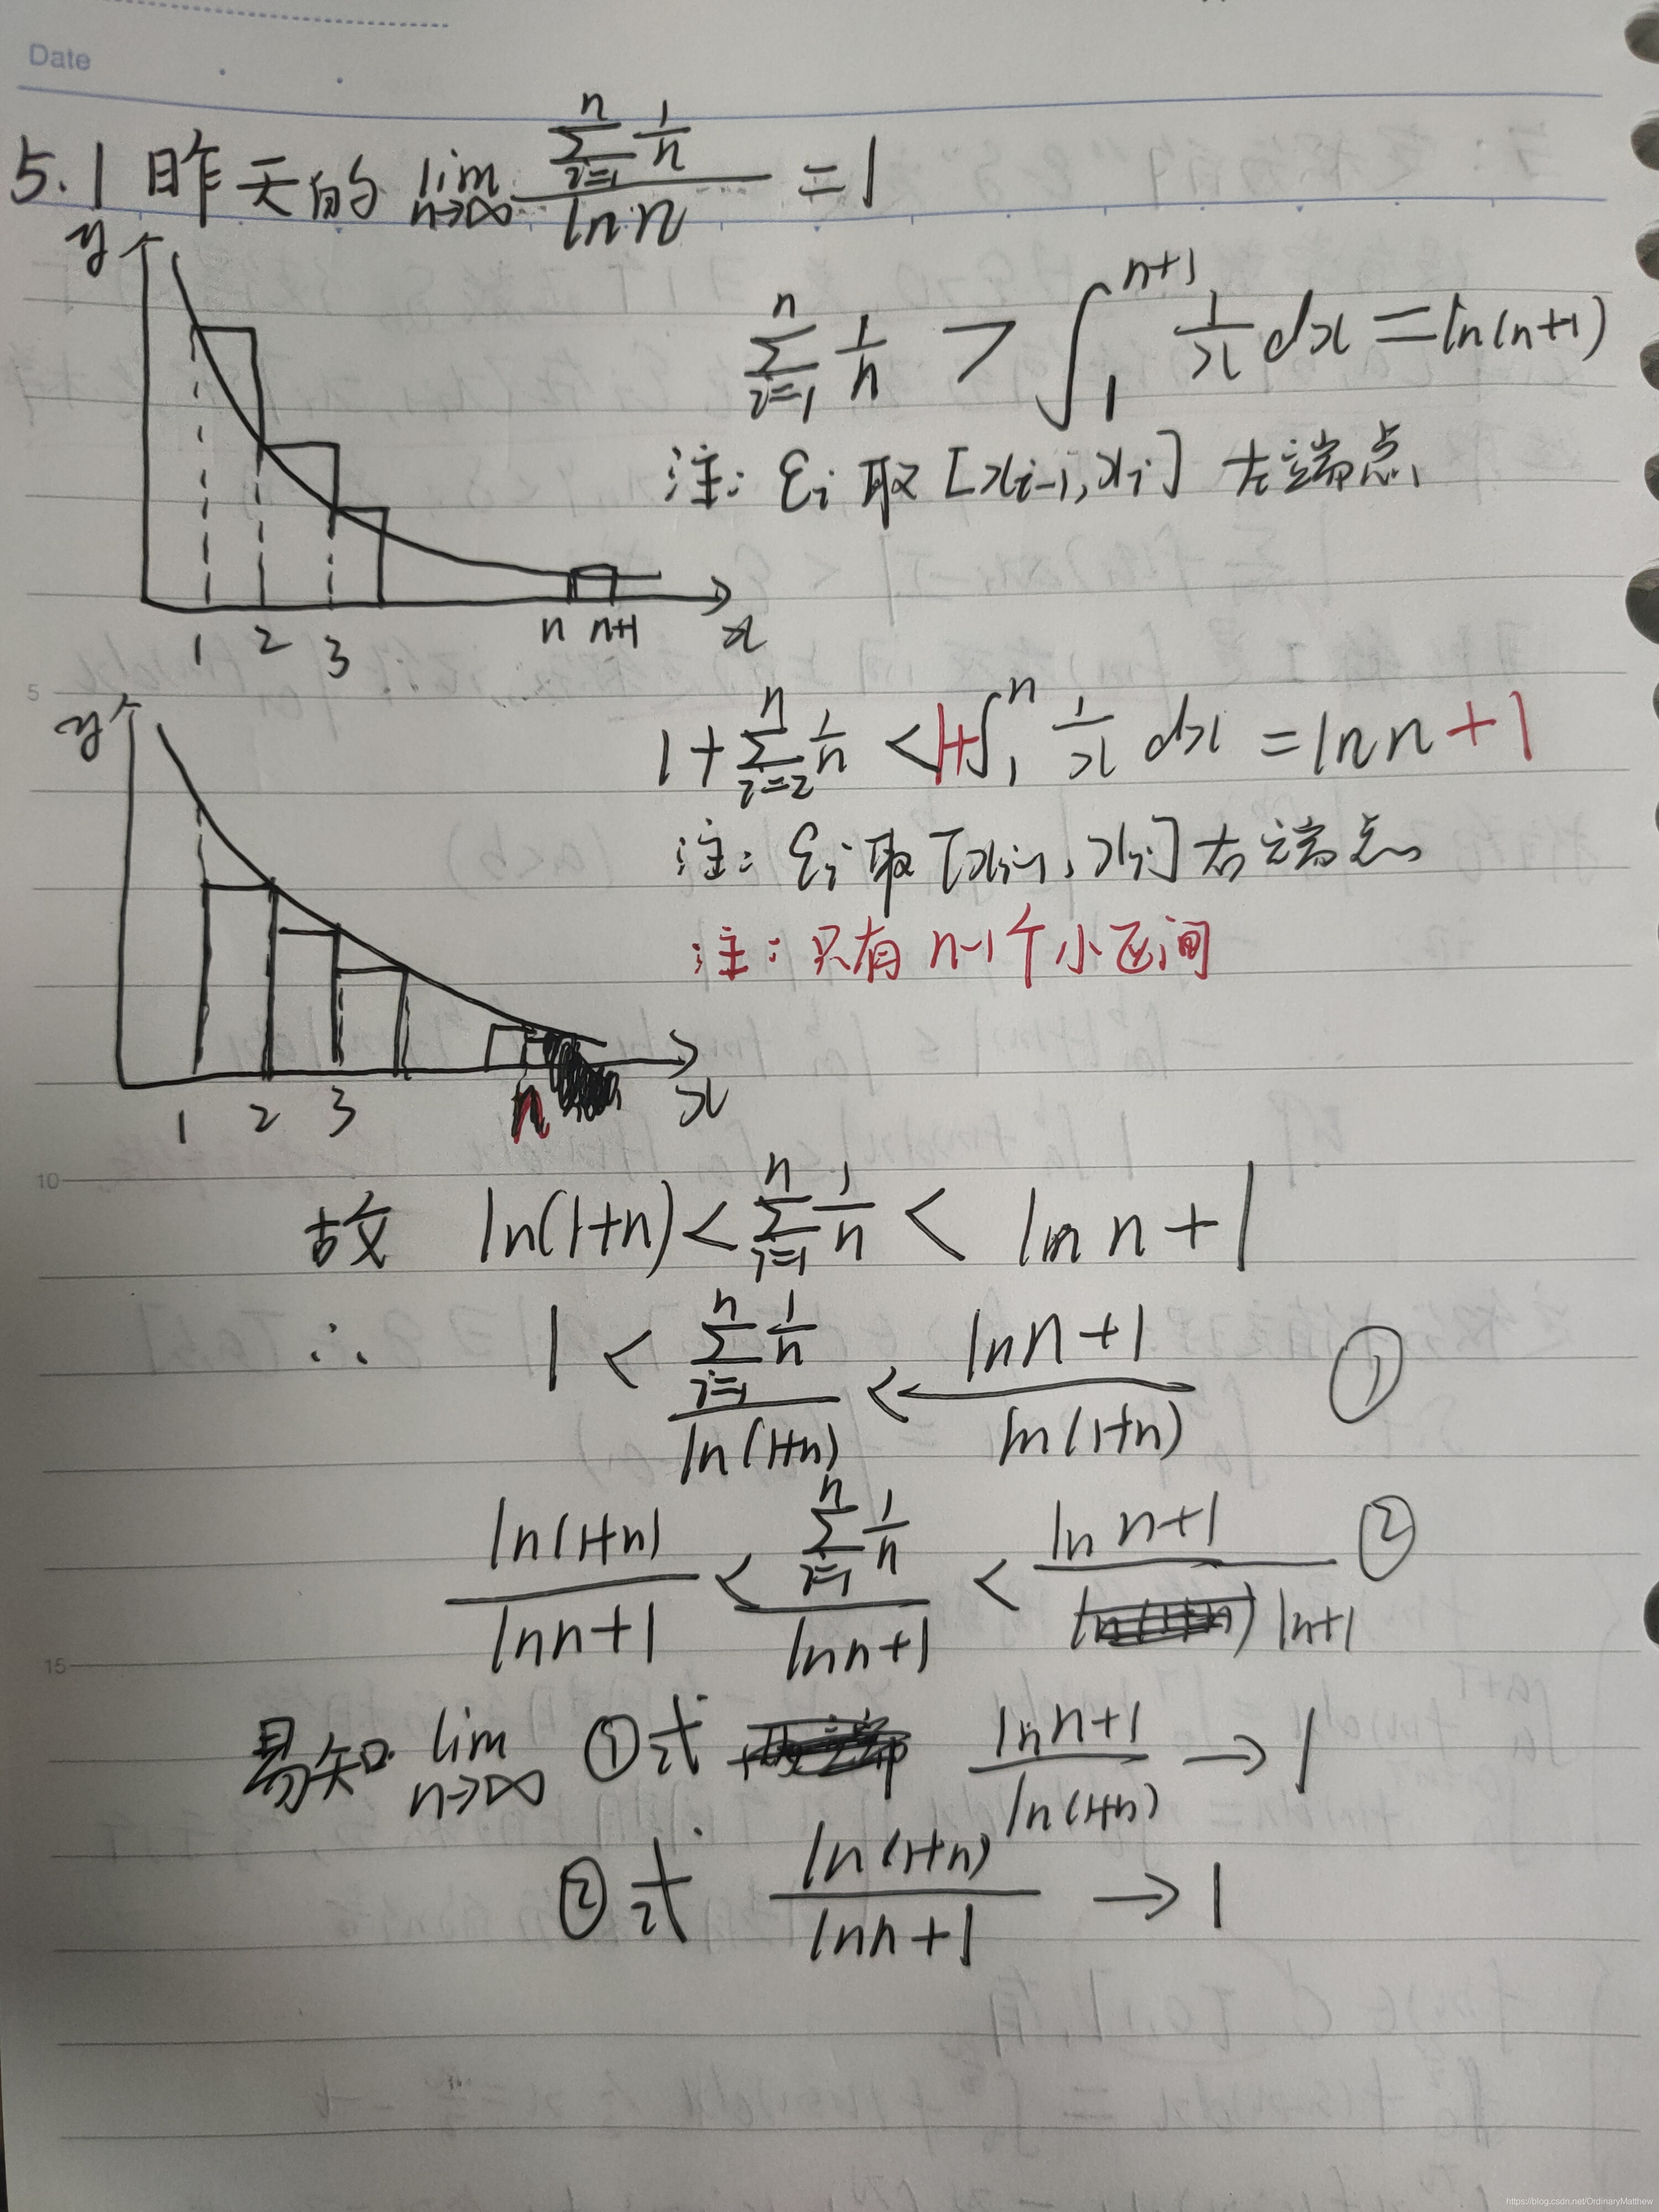 Date
5.1 昨天的 lim n→∞ (∑ i=1 n 1/n)/(ln n) = 1
y
∑ i=1 n 1/n > ∫ 1 n+1 1/x dx = ln(n+1)
注: ξi 取 [xi-1, xi] 左端点
1 2 3 n n+1 x
5
y
1 + ∑ i=2 n 1/n < 1+ ∫ 1 n 1/x dx = ln n + 1
注: ξi 取 [xi-1, xi] 右端点
注: 只有 n-1个小区间
1 2 3 n x
10
故 ln(1+n) < ∑ i=1 n 1/n < ln n + 1
∴ 1 < (∑ i=1 n 1/n)/(ln(1+n)) < (ln n + 1)/(ln(1+n)) ①
(ln(1+n))/(ln n + 1) < (∑ i=1 n 1/n)/(ln n + 1) < (ln n + 1)/(ln+1) ②
15
易知 lim n→∞ ①式 (ln n + 1)/(ln(1+n)) → 1
②式 (ln(1+n))/(ln n + 1) → 1
https://blog.csdn.net/OrdinaryMatthew